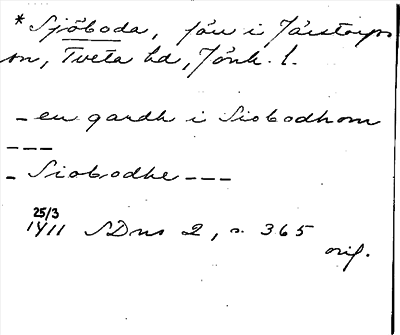 *Sjöboda, förr i Järstorps
sn, Tveta hd, Jönk. l.
– en gardh i Siobodhom
---
– Siobodhe ---
25/3
1411 SDns 2, s. 365
orig.